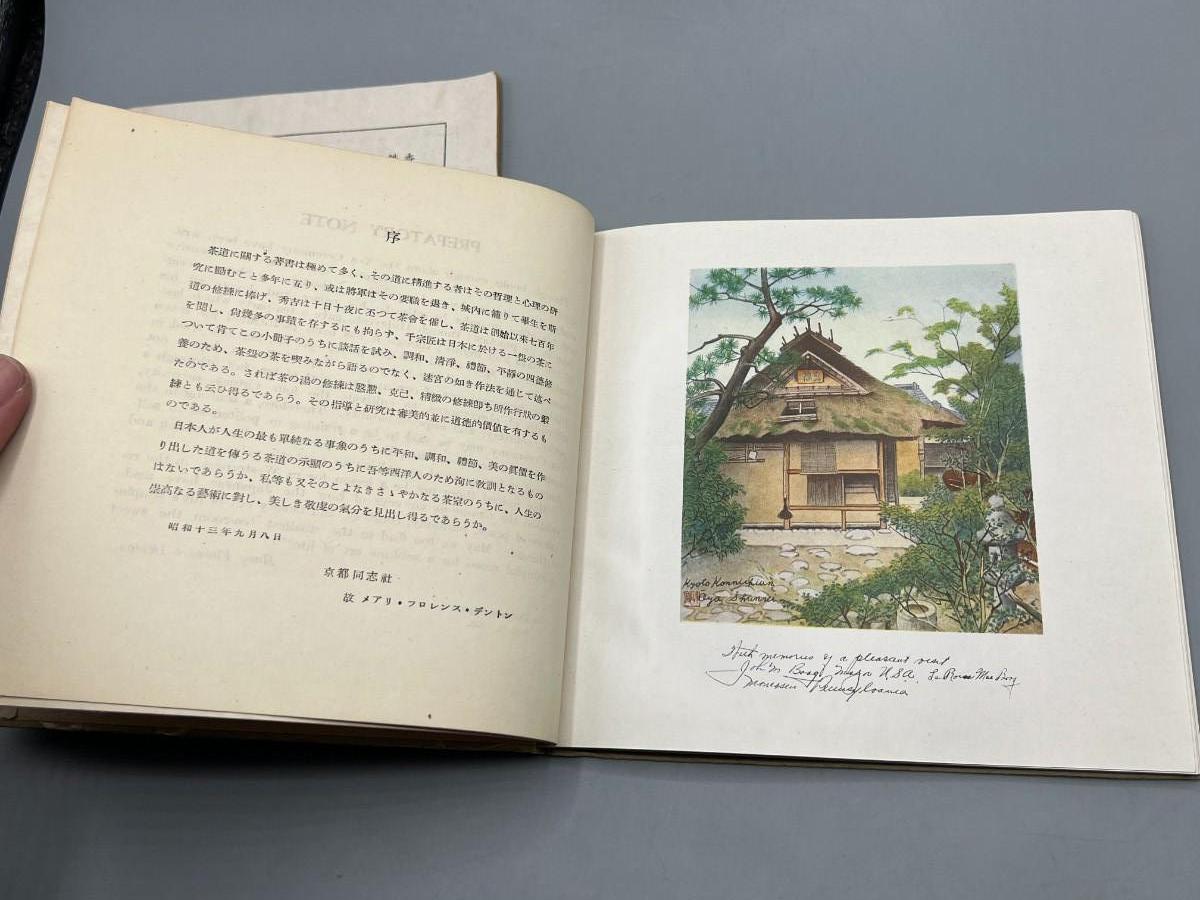 序
茶道に關する著書は極めて多く、その道に精進する者はその哲理と心理の研
究に勵むこと多年に亙り、或は將軍はその要職を退き、城內に籠りて畢生を斯
道の修練に捧げ、秀吉は十日十夜に亙つて茶會を催し、茶道は創始以來七百年
を閱し、尙幾多の事蹟を存するにも拘らず、千宗匠は日本に於ける一盌の茶に
ついて眘てこの小册子のうちに談話を試み、調和、淸淨、禮節、平靜の四德修
養のため、茶盌の茶を喫みながら語るのでなく、迷宮の如き作法を通じて述べ
たのである。されば茶の湯の修練は慇懃、克己、精緻の修練卽ち所作行狀の鍛
練とも云ひ得るであらう。その指導と硏究は審美的並に道德的價値を有するも
のである。
日本人が人生の最も單純なる事象のうちに平和、調和、禮節、美の眞價を作
り出した道を傳うる茶道の示顯のうちに吾等西洋人のため洵に敎訓となるもの
はないであらうか、私等も又そのこよなきさゝやかなる茶室のうちに、人生の
崇高なる藝術に對し、美しき敬虔の氣分を見出し得るであらうか。
昭和十三年九月八日
京都同志社
故 メアリ・フロレンス・デントン
PREFATORY NOTE
Kyoto Konnichian
Oya Shunrei
With memories of a pleasant visit
John M. Major U.S.A.
Monessen Pennsylvania